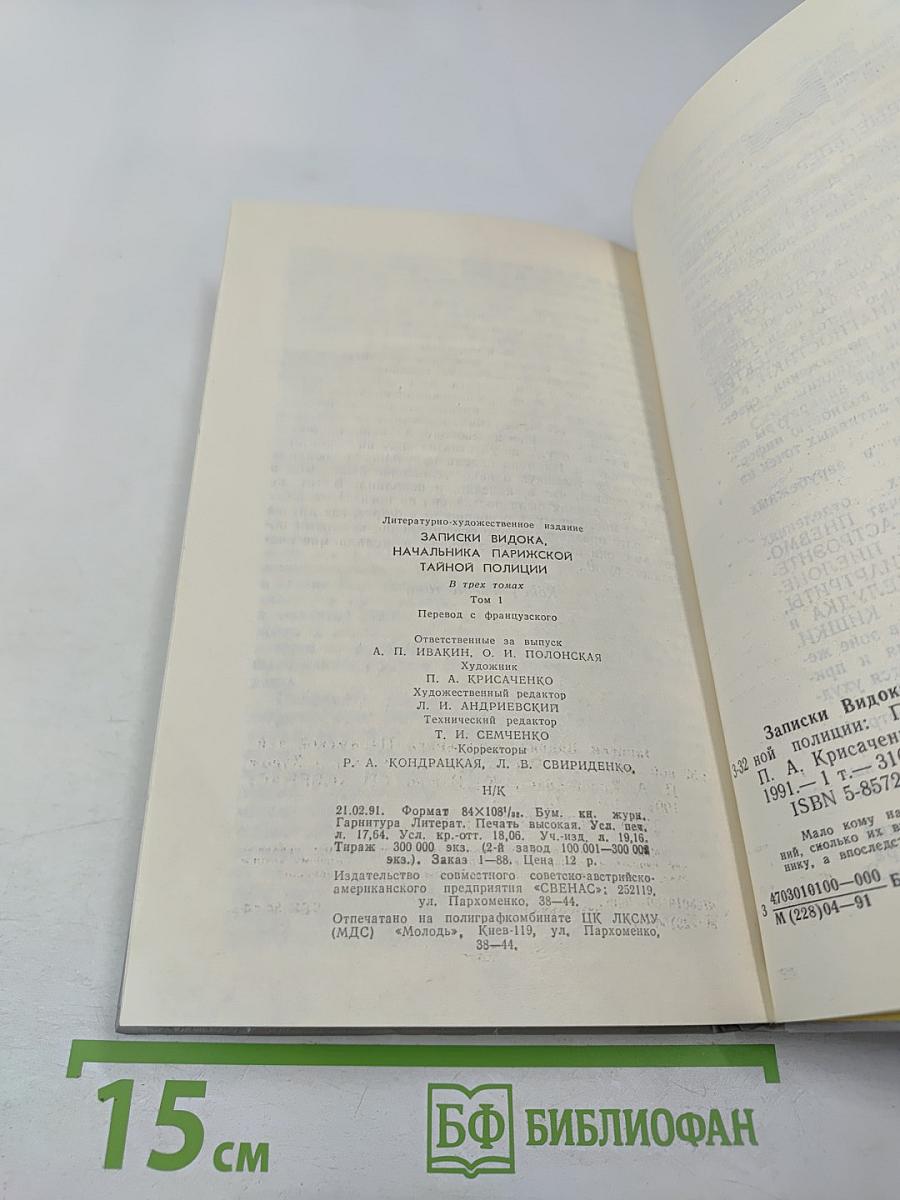 Литературно-художественное издание
ЗАПИСКИ ВИДОКА,
НАЧАЛЬНИКА ПАРИЖСКОЙ
ТАЙНОЙ ПОЛИЦИИ
В трех томах
Том 1
Перевод с французского
Ответственные за выпуск
А. П. ИВАКИН, О. И. ПОЛОНСКАЯ
Художник
П. А. КРИСАЧЕНКО
Художественный редактор
Л. И. АНДРИЕВСКИЙ
Технический редактор
Т. И. СЕМЧЕНКО
Корректоры
Р. А. КОНДРАЦКАЯ, Л. В. СВИРИДЕНКО.
Н/К
21.02.91. Формат 84×108¹/₃₂. Бум. кн. журн.
Гарнитура Литерат. Печать высокая. Усл. печ.
л. 17,64. Усл. кр.-отт. 18,06. Уч.-изд. л. 19,16.
Тираж 300 000 экз. (2-й завод 100 001—300 000
экз.). Заказ 1—88. Цена 12 р.
Издательство совместного советско-австрийско-
американского предприятия «СВЕНАС»: 252119,
ул. Пархоменко, 38—44.
Отпечатано на полиграфкомбинате ЦК ЛКСМУ
(МДС) «Молодь», Киев-119, ул. Пархоменко,
38—44.
Записки Видок
3-32 ной полиции:
П. А. Крисачен
1991.— 1 т.— 31
ISBN 5-8572
Мало кому
ний, сколько их
нику, а впоследст
3 4703010100—000
М(228)04—91
15 см
БФ БИБЛИОФАН